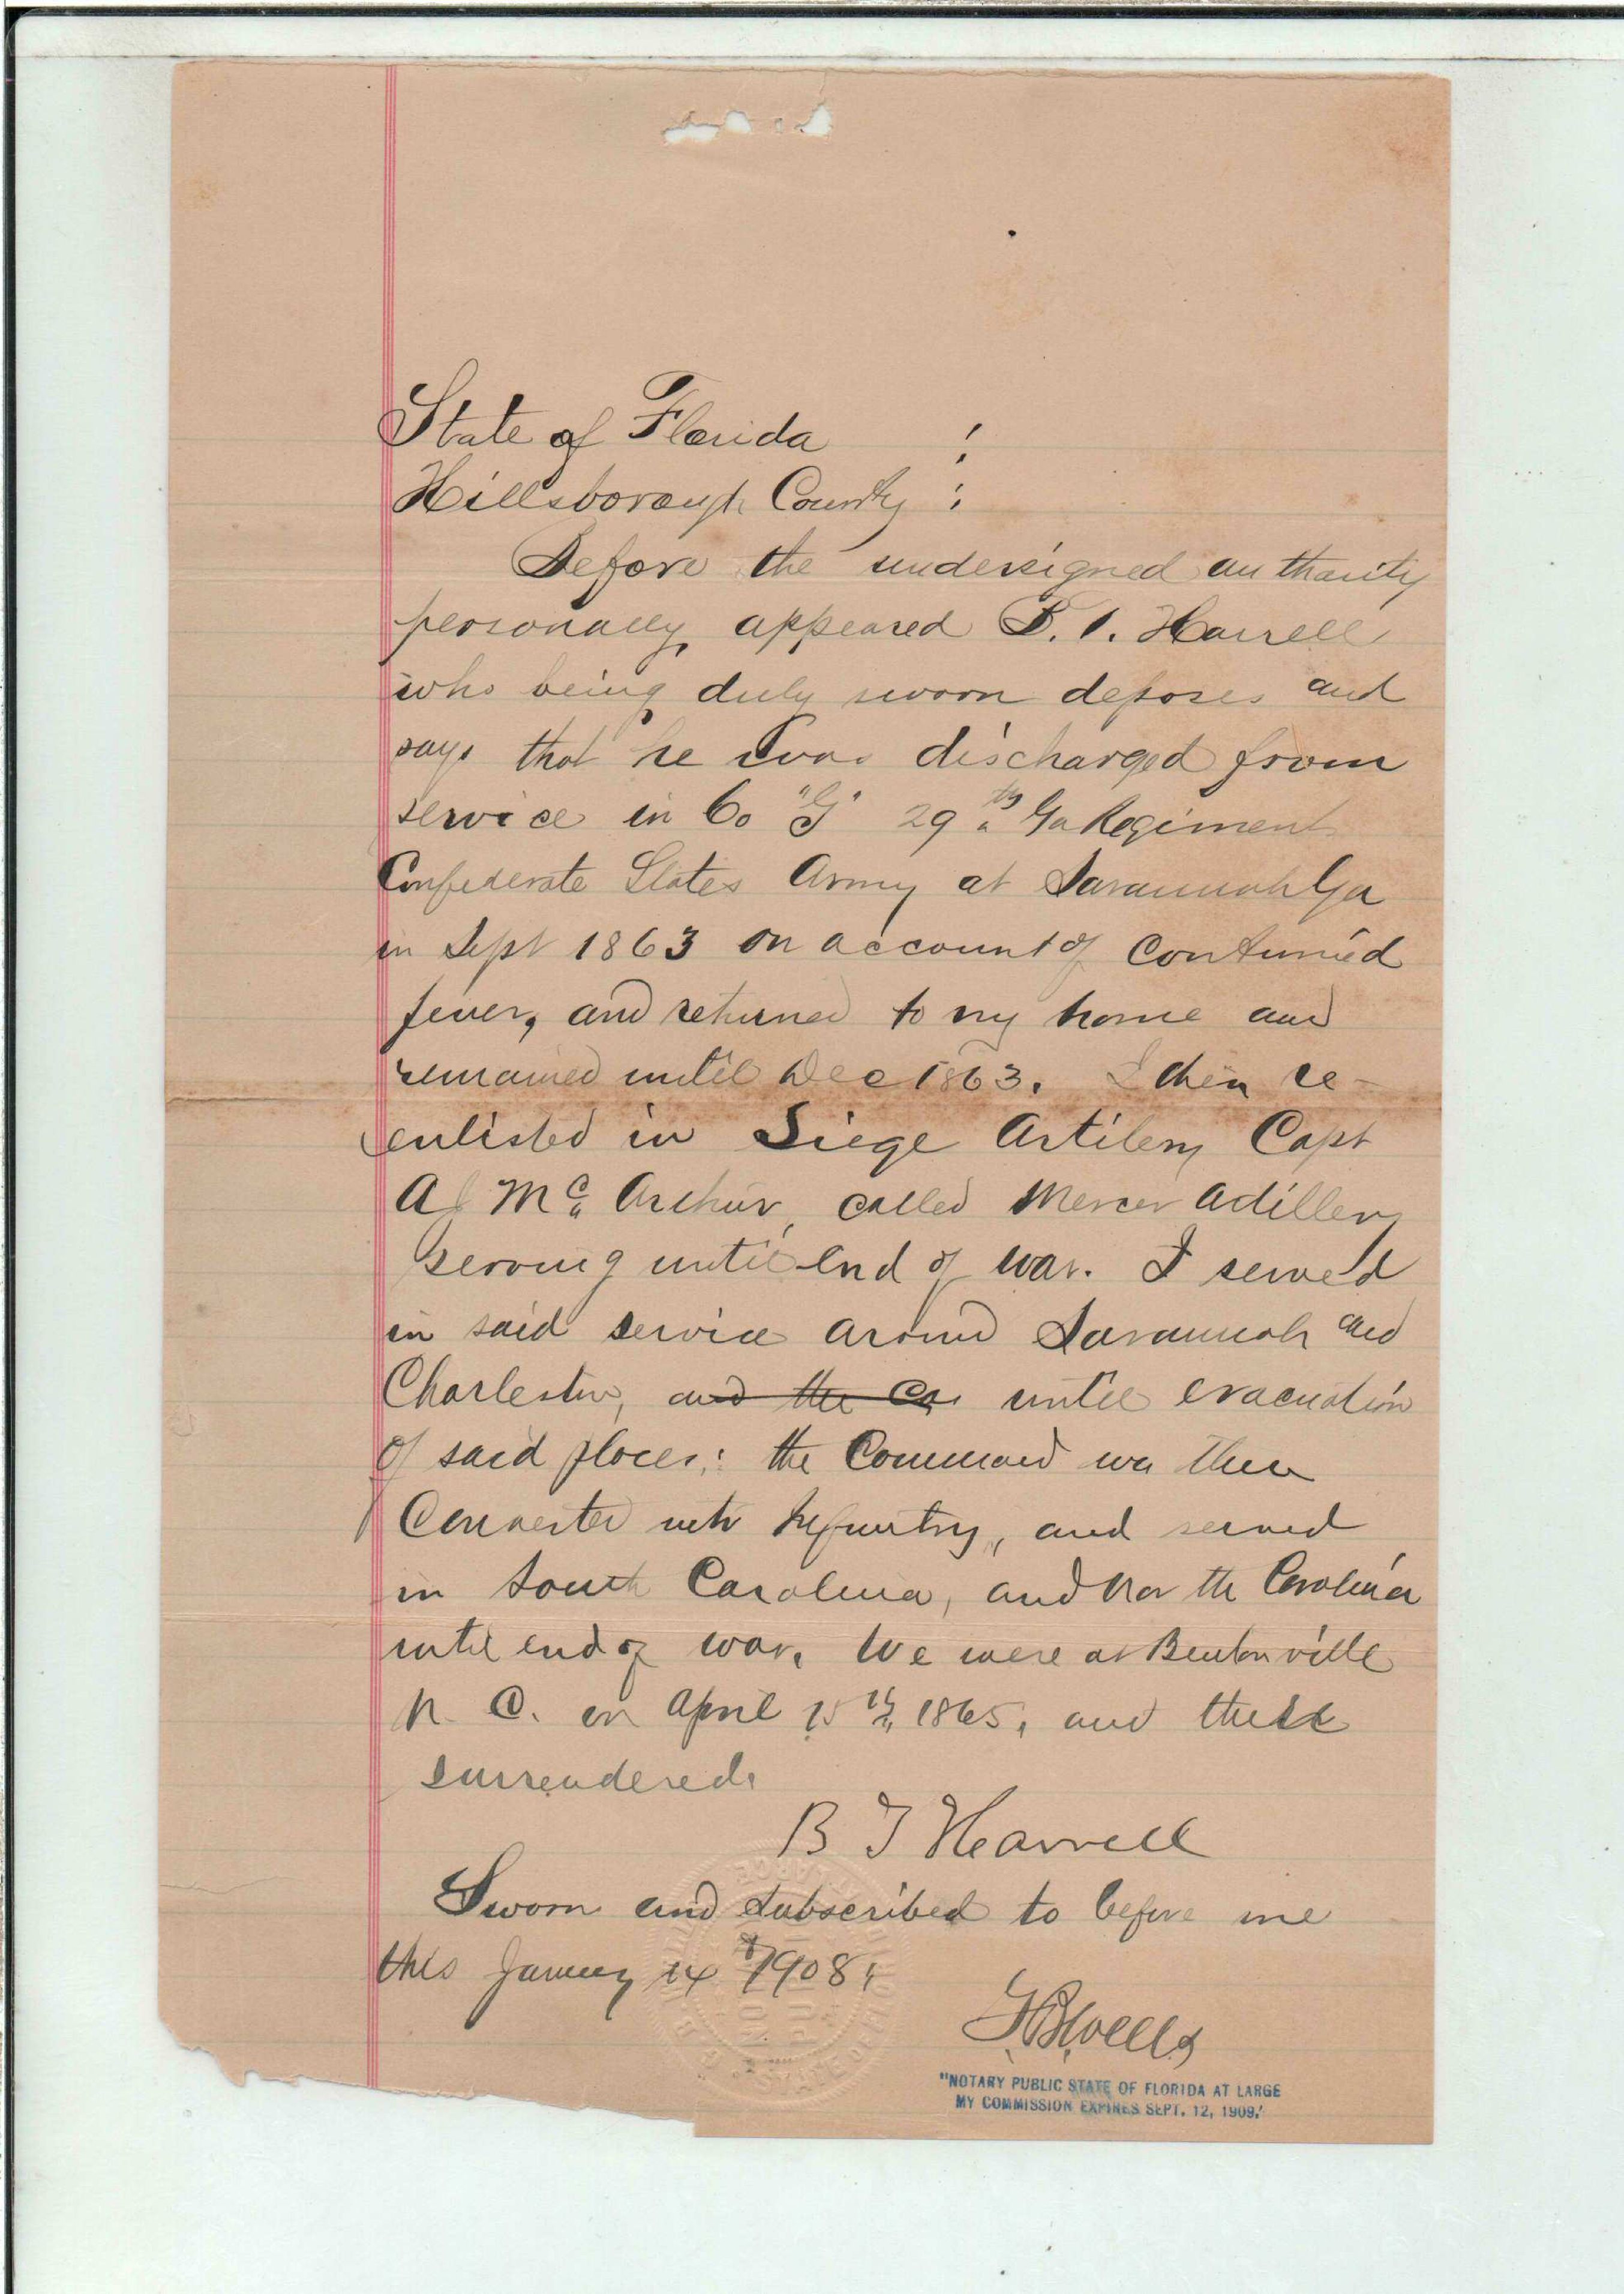 State of Florida :
Hillsborough County :
Before the undersigned authority
personally appeared B. T. Harrell
who being duly sworn deposes and
says that he was discharged from
service in Co "G" 29th Ga Regiment
Confederate States Army at Savannah Ga
in Sept 1863 on account of Continued
fever, and returned to my home and
remained until Dec 1863. I then re-
enlisted in Siege Artilery Capt
Mc called Mercer Artillery
serving until end of war. I served
in said service around Savannah and
Charleston, and the Co until evacuation
of said places: the Command was then
Converted into Infantry, and served
in South Carolina, and North Carolina
until end of war. We were at Bentonville
N. C. in April 15th, 1865, and there
surrendered.
B T Harrell
Sworn and subscribed to before me
this January 14 1908.
Wells
"NOTARY PUBLIC STATE OF FLORIDA AT LARGE
MY COMMISSION EXPIRES SEPT. 12, 1909."